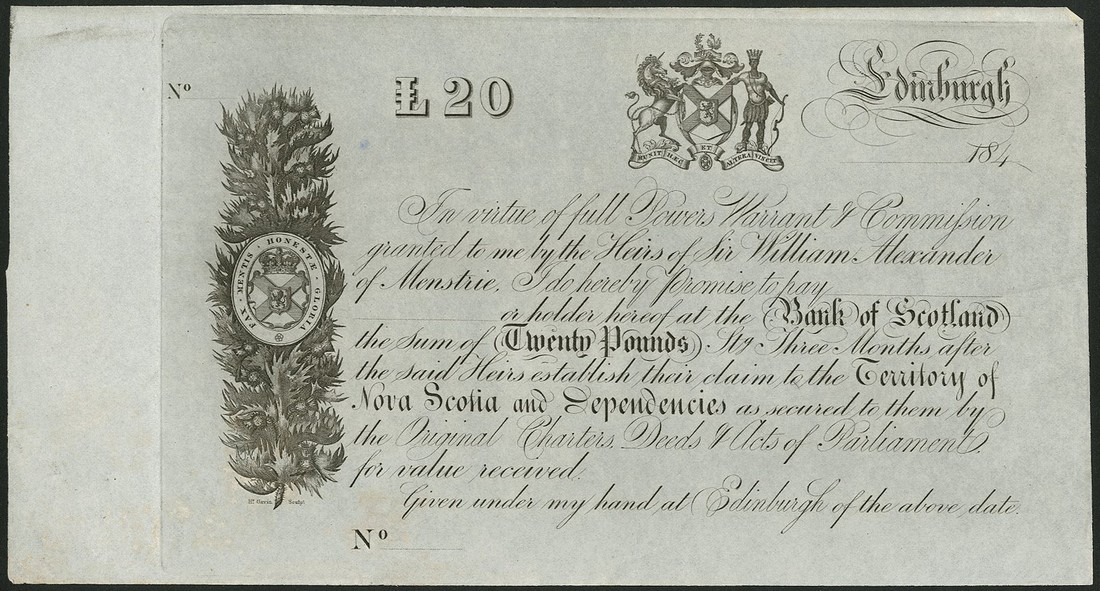 Nº
£ 20
MUNIT HÆC ET ALTERA VINCIT
Edinburgh
184
In virtue of full Powers Warrant & Commission
granted to me by the Heirs of Sir William Alexander
of Menstrie, I do hereby Promise to pay
or holder hereof at the Bank of Scotland
the Sum of Twenty Pounds Stg Three Months after
the said Heirs establish their claim to the Territory of
Nova Scotia and Dependencies as secured to them by
the Original Charters, Deeds & Acts of Parliament
for value received.
Given under my hand at Edinburgh of the above date.
PAX · MENTIS · HONESTÆ · GLORIA
Hr. Gavin Sculpt.
Nº